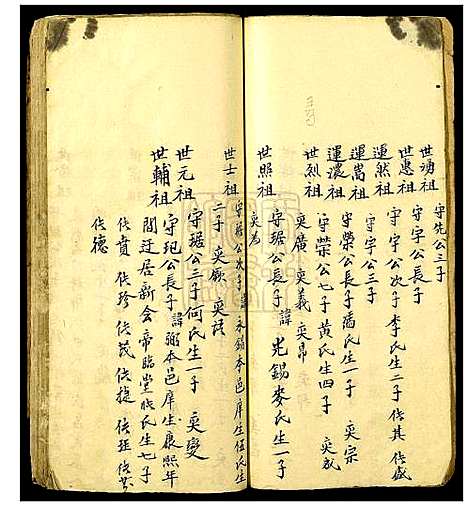 世頊祖 守先公三子
世惠祖 守宇公長子
運然祖 守宇公次子 李氏生二子 俊其 俊盛
運嵩祖 守宇公三子
運濃祖 守榮公長子 潘氏生一子 奕宗
世烈祖 守榮公七子 黃氏生四子 奕成
奕廣 奕義 奕昂
世照祖 守琚公長子 諱光錫 麥氏生一子
奕為
世士祖 守琚公次子 諱永錫 本邑庠生 伍氏生
二子 奕顧 奕
世元祖 守琚公三子 何氏生一子 奕變
世輔祖 守玘公長子 諱弼 本邑庠生 康熙年
間迁居新會帝臨堂 氏生七子
俊賁 俊珍 俊茂 俊捷 俊廷
俊德